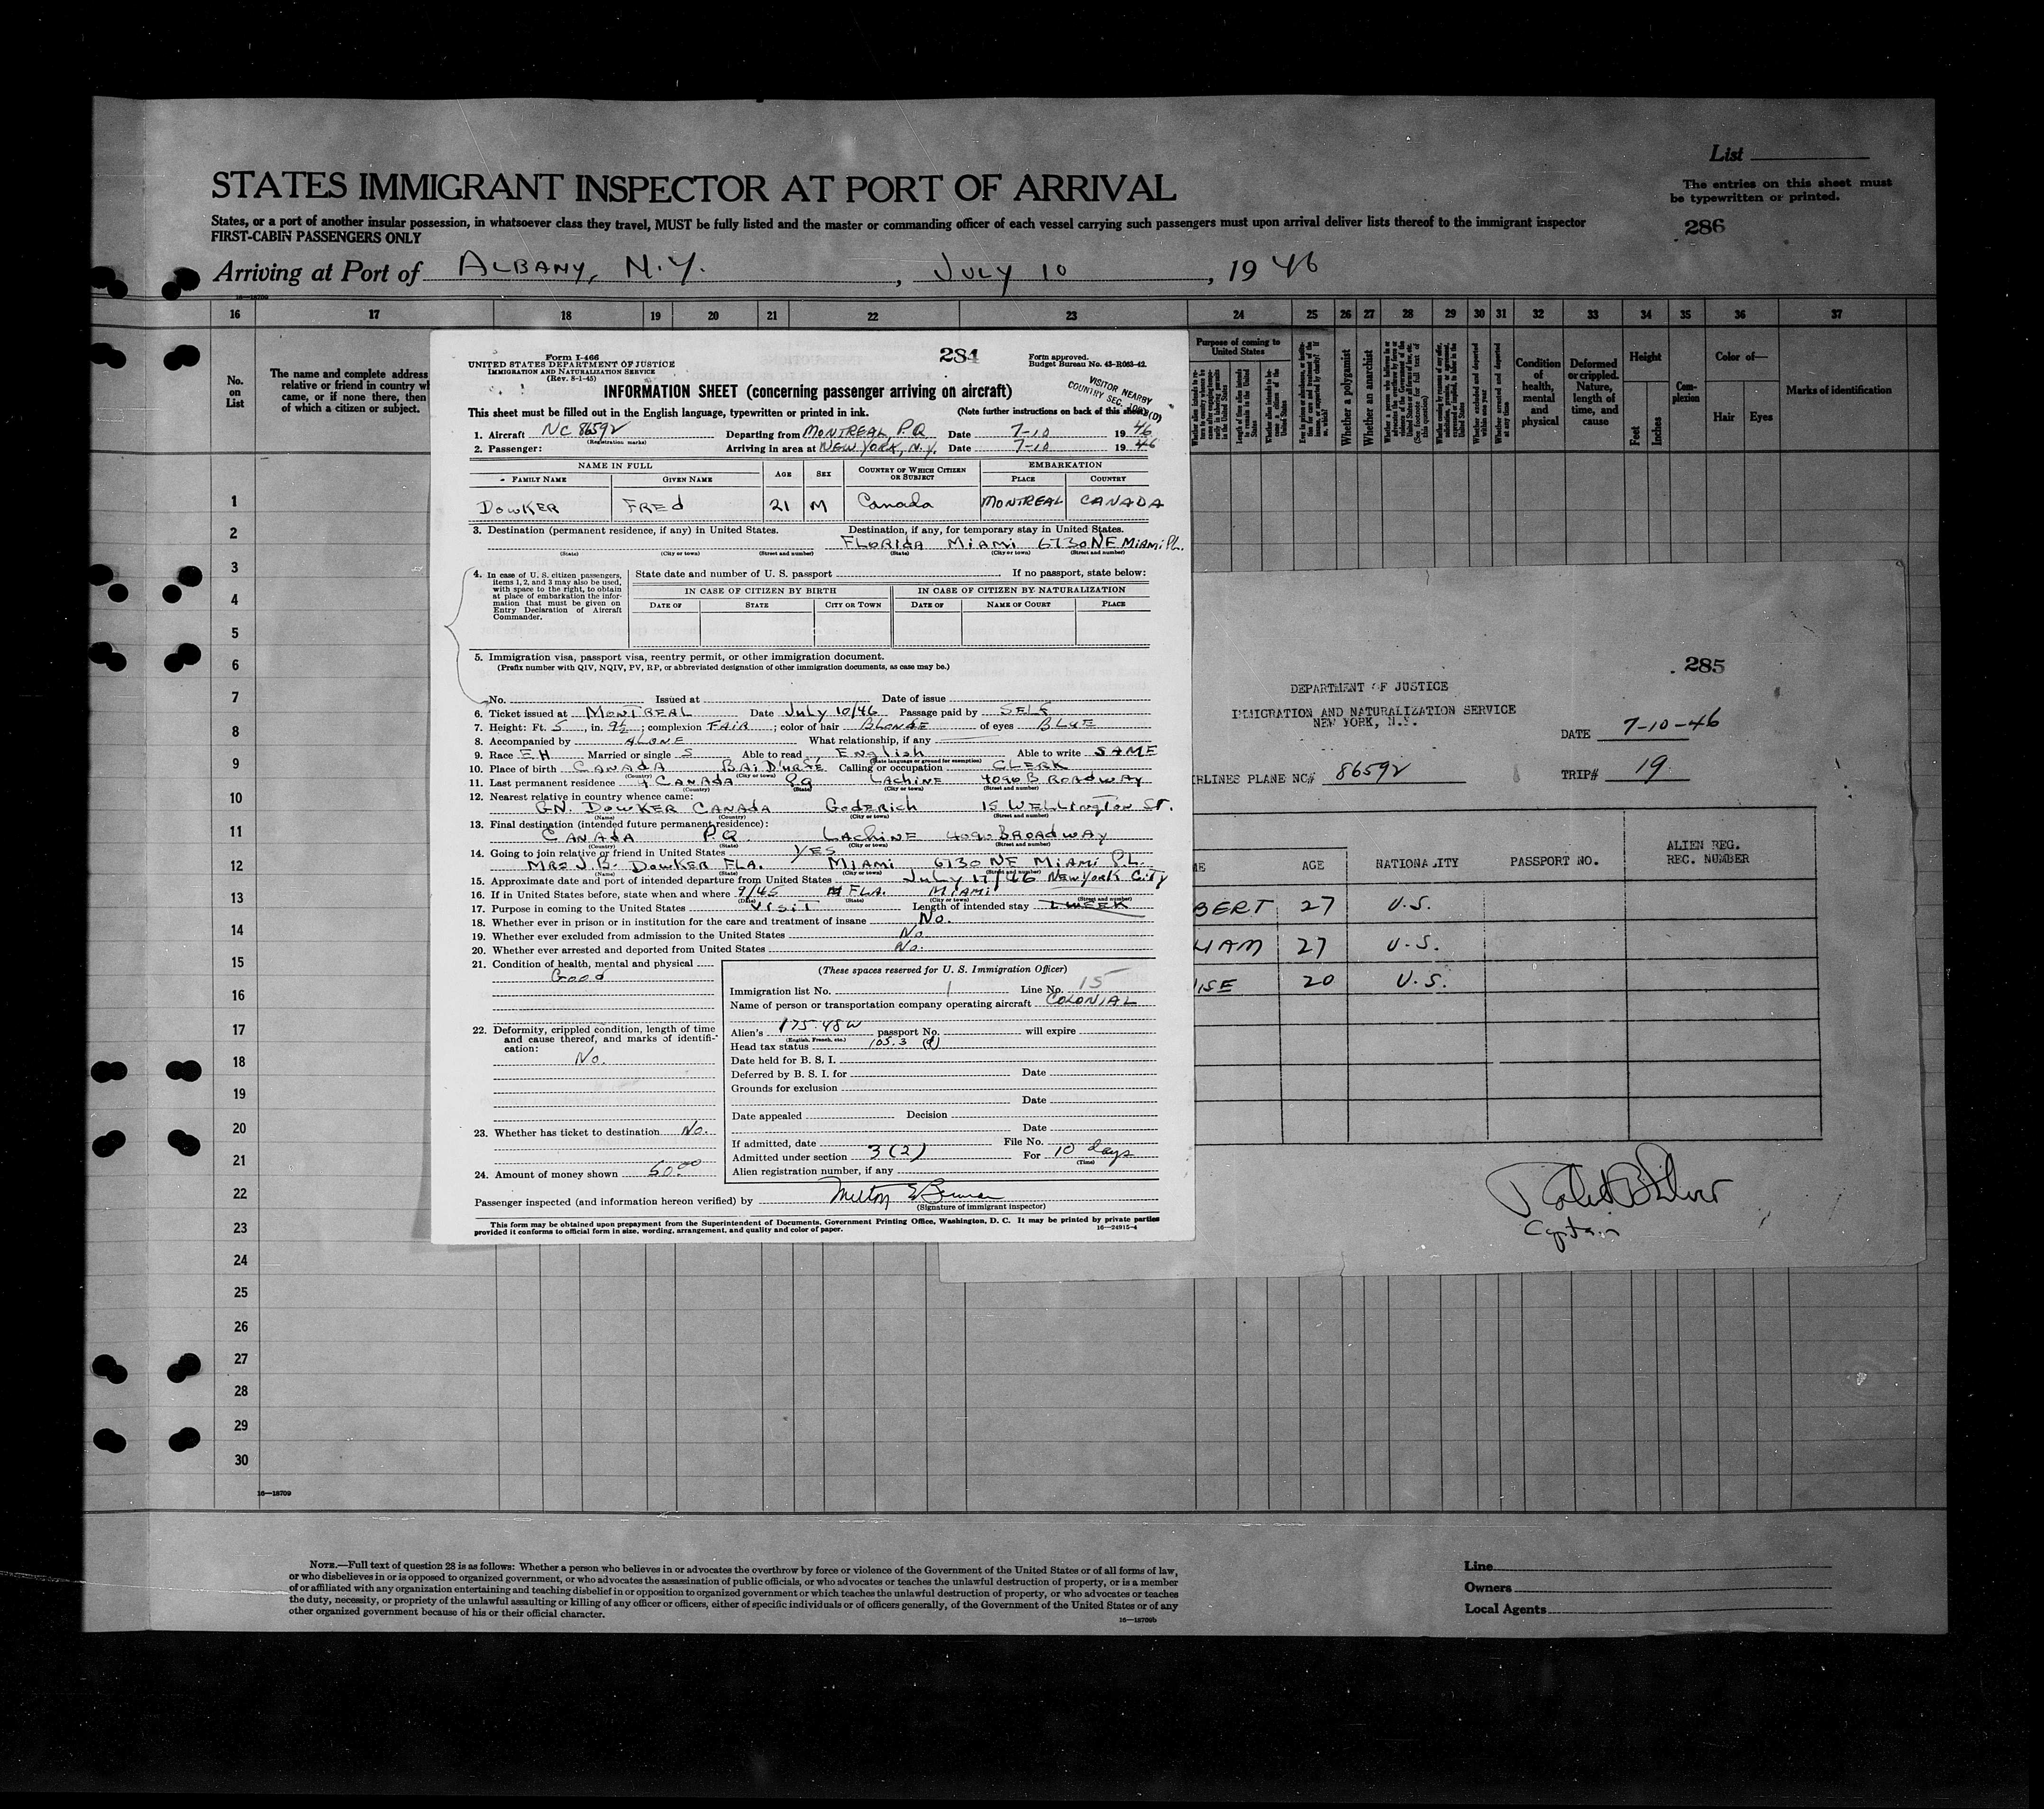 List
STATES IMMIGRANT INSPECTOR AT PORT OF ARRIVAL
The entries on this sheet must
be typewritten or printed.
States, or a port of another insular possession, in whatsoever class they travel, MUST be fully listed and the master or commanding officer of each vessel carrying such passengers must upon arrival deliver lists thereof to the immigrant inspector
FIRST-CABIN PASSENGERS ONLY
286
Arriving at Port of ALBANY, N.Y. , JULY 10 , 19 46
16—18709
16 17 18 19 20 21 22 23 24 25 26 27 28 29 30 31 32 33 34 35 36 37
No.
on
List
The name and complete address
relative or friend in country wh
came, or if none there, then
of which a citizen or subject.
Purpose of coming to
United States
Whether a polygamist
Whether an anarchist
Condition
of
health,
mental
and
physical
Deformed
or crippled.
Nature,
length of
time, and
cause
Height
Feet
Inches
Com-
plexion
Color of—
Hair Eyes
Marks of identification
1
2
3
4
5
6
7
8
9
10
11
12
13
14
15
16
17
18
19
20
21
22
23
24
25
26
27
28
29
30
16—18709
Form I-466
UNITED STATES DEPARTMENT OF JUSTICE
IMMIGRATION AND NATURALIZATION SERVICE
(Rev. 8-1-45)
284
Form approved.
Budget Bureau No. 43-R063-42.
INFORMATION SHEET (concerning passenger arriving on aircraft)
VISITOR NEARBY
COUNTRY SEC.
This sheet must be filled out in the English language, typewritten or printed in ink. (Note further instructions on back of this sheet)
1. Aircraft NC 86592 Departing from MONTREAL, P.Q Date 7-10 19 46
(Registration marks)
2. Passenger: Arriving in area at NEW YORK, N.Y. Date 7-10 19 46
NAME IN FULL AGE SEX COUNTRY OF WHICH CITIZEN OR SUBJECT EMBARKATION
FAMILY NAME GIVEN NAME PLACE COUNTRY
DOWKER FREd 21 M Canada MONTREAL CANADA
3. Destination (permanent residence, if any) in United States. Destination, if any, for temporary stay in United States.
FLORIdA MiAmi 6730 NE MiAmi PL.
(State) (City or town) (Street and number) (State) (City or town) (Street and number)
4. In case of U. S. citizen passengers,
items 1, 2, and 3 may also be used,
with space to the right, to obtain
at place of embarkation the infor-
mation that must be given on
Entry Declaration of Aircraft
Commander.
State date and number of U. S. passport If no passport, state below:
IN CASE OF CITIZEN BY BIRTH IN CASE OF CITIZEN BY NATURALIZATION
DATE OF STATE CITY OR TOWN DATE OF NAME OF COURT PLACE
5. Immigration visa, passport visa, reentry permit, or other immigration document.
(Prefix number with QIV, NQIV, PV, RP, or abbreviated designation of other immigration documents, as case may be.)
No. Issued at Date of issue
6. Ticket issued at MONTREAL Date July 10/46 Passage paid by SELF
7. Height: Ft. 5, in. 9½; complexion FAIR; color of hair BLONDE of eyes BLUE
8. Accompanied by ALONE What relationship, if any
9. Race EH Married or single S Able to read English Able to write SAME
(State language or ground for exemption)
10. Place of birth CANADA BAI D'URFÉ Calling or occupation CLERK
(Country) (City or town)
11. Last permanent residence CANADA P.Q LACHINE 4090 BROADWAY
(Country) (State) (City or town) (Street and number)
12. Nearest relative in country whence came:
G.N. DOWKER CANADA GODERICH 15 WELLINGTON ST.
(Name) (Country) (City or town) (Street and number)
13. Final destination (intended future permanent residence):
CANADA P.Q. LACHINE 4090 BROADWAY
(Country) (State) (City or town) (Street and number)
14. Going to join relative or friend in United States YES
MRS J.B. DOWKER FLA. MIAMI 6730 NE MIAMI PL.
(Name) (State) (City or town) (Street and number)
15. Approximate date and port of intended departure from United States July 17/46 New York City
16. If in United States before, state when and where 9/45 FLA. MIAMI
(Date) (State) (City or town) (Street and number)
17. Purpose in coming to the United States VISIT Length of intended stay 1 WEEK
18. Whether ever in prison or in institution for the care and treatment of insane No.
19. Whether ever excluded from admission to the United States No
20. Whether ever arrested and deported from United States No.
21. Condition of health, mental and physical
Good
22. Deformity, crippled condition, length of time
and cause thereof, and marks of identifi-
cation:
No.
23. Whether has ticket to destination No.
24. Amount of money shown 50.00
(These spaces reserved for U. S. Immigration Officer)
Immigration list No. 1 Line No. 15
Name of person or transportation company operating aircraft COLONIAL
Alien's 175.48W passport No. will expire
(English, French, etc.)
Head tax status 105.3
Date held for B. S. I.
Deferred by B. S. I. for Date
Grounds for exclusion
Date
Date appealed Decision
Date
If admitted, date File No.
Admitted under section 3(2) For 10 days
(Time)
Alien registration number, if any
Passenger inspected (and information hereon verified) by Milton
(Signature of immigrant inspector)
This form may be obtained upon prepayment from the Superintendent of Documents, Government Printing Office, Washington, D. C. It may be printed by private parties
provided it conforms to official form in size, wording, arrangement, and quality and color of paper. 16—24915-4
285
DEPARTMENT OF JUSTICE
IMMIGRATION AND NATURALIZATION SERVICE
NEW YORK, N.Y.
DATE 7-10-46
RLINES PLANE NC# 86592 TRIP# 19
ME AGE NATIONALITY PASSPORT NO. ALIEN REG.
REG. NUMBER
BERT 27 U.S.
IAM 27 U.S.
ISE 20 U.S.
Captain
NOTE.—Full text of question 28 is as follows: Whether a person who believes in or advocates the overthrow by force or violence of the Government of the United States or of all forms of law,
or who disbelieves in or is opposed to organized government, or who advocates the assassination of public officials, or who advocates or teaches the unlawful destruction of property, or is a member
of or affiliated with any organization entertaining and teaching disbelief in or opposition to organized government or which teaches the unlawful destruction of property, or who advocates or teaches
the duty, necessity, or propriety of the unlawful assaulting or killing of any officer or officers, either of specific individuals or of officers generally, of the Government of the United States or of any
other organized government because of his or their official character.
16—18709b
Line
Owners
Local Agents